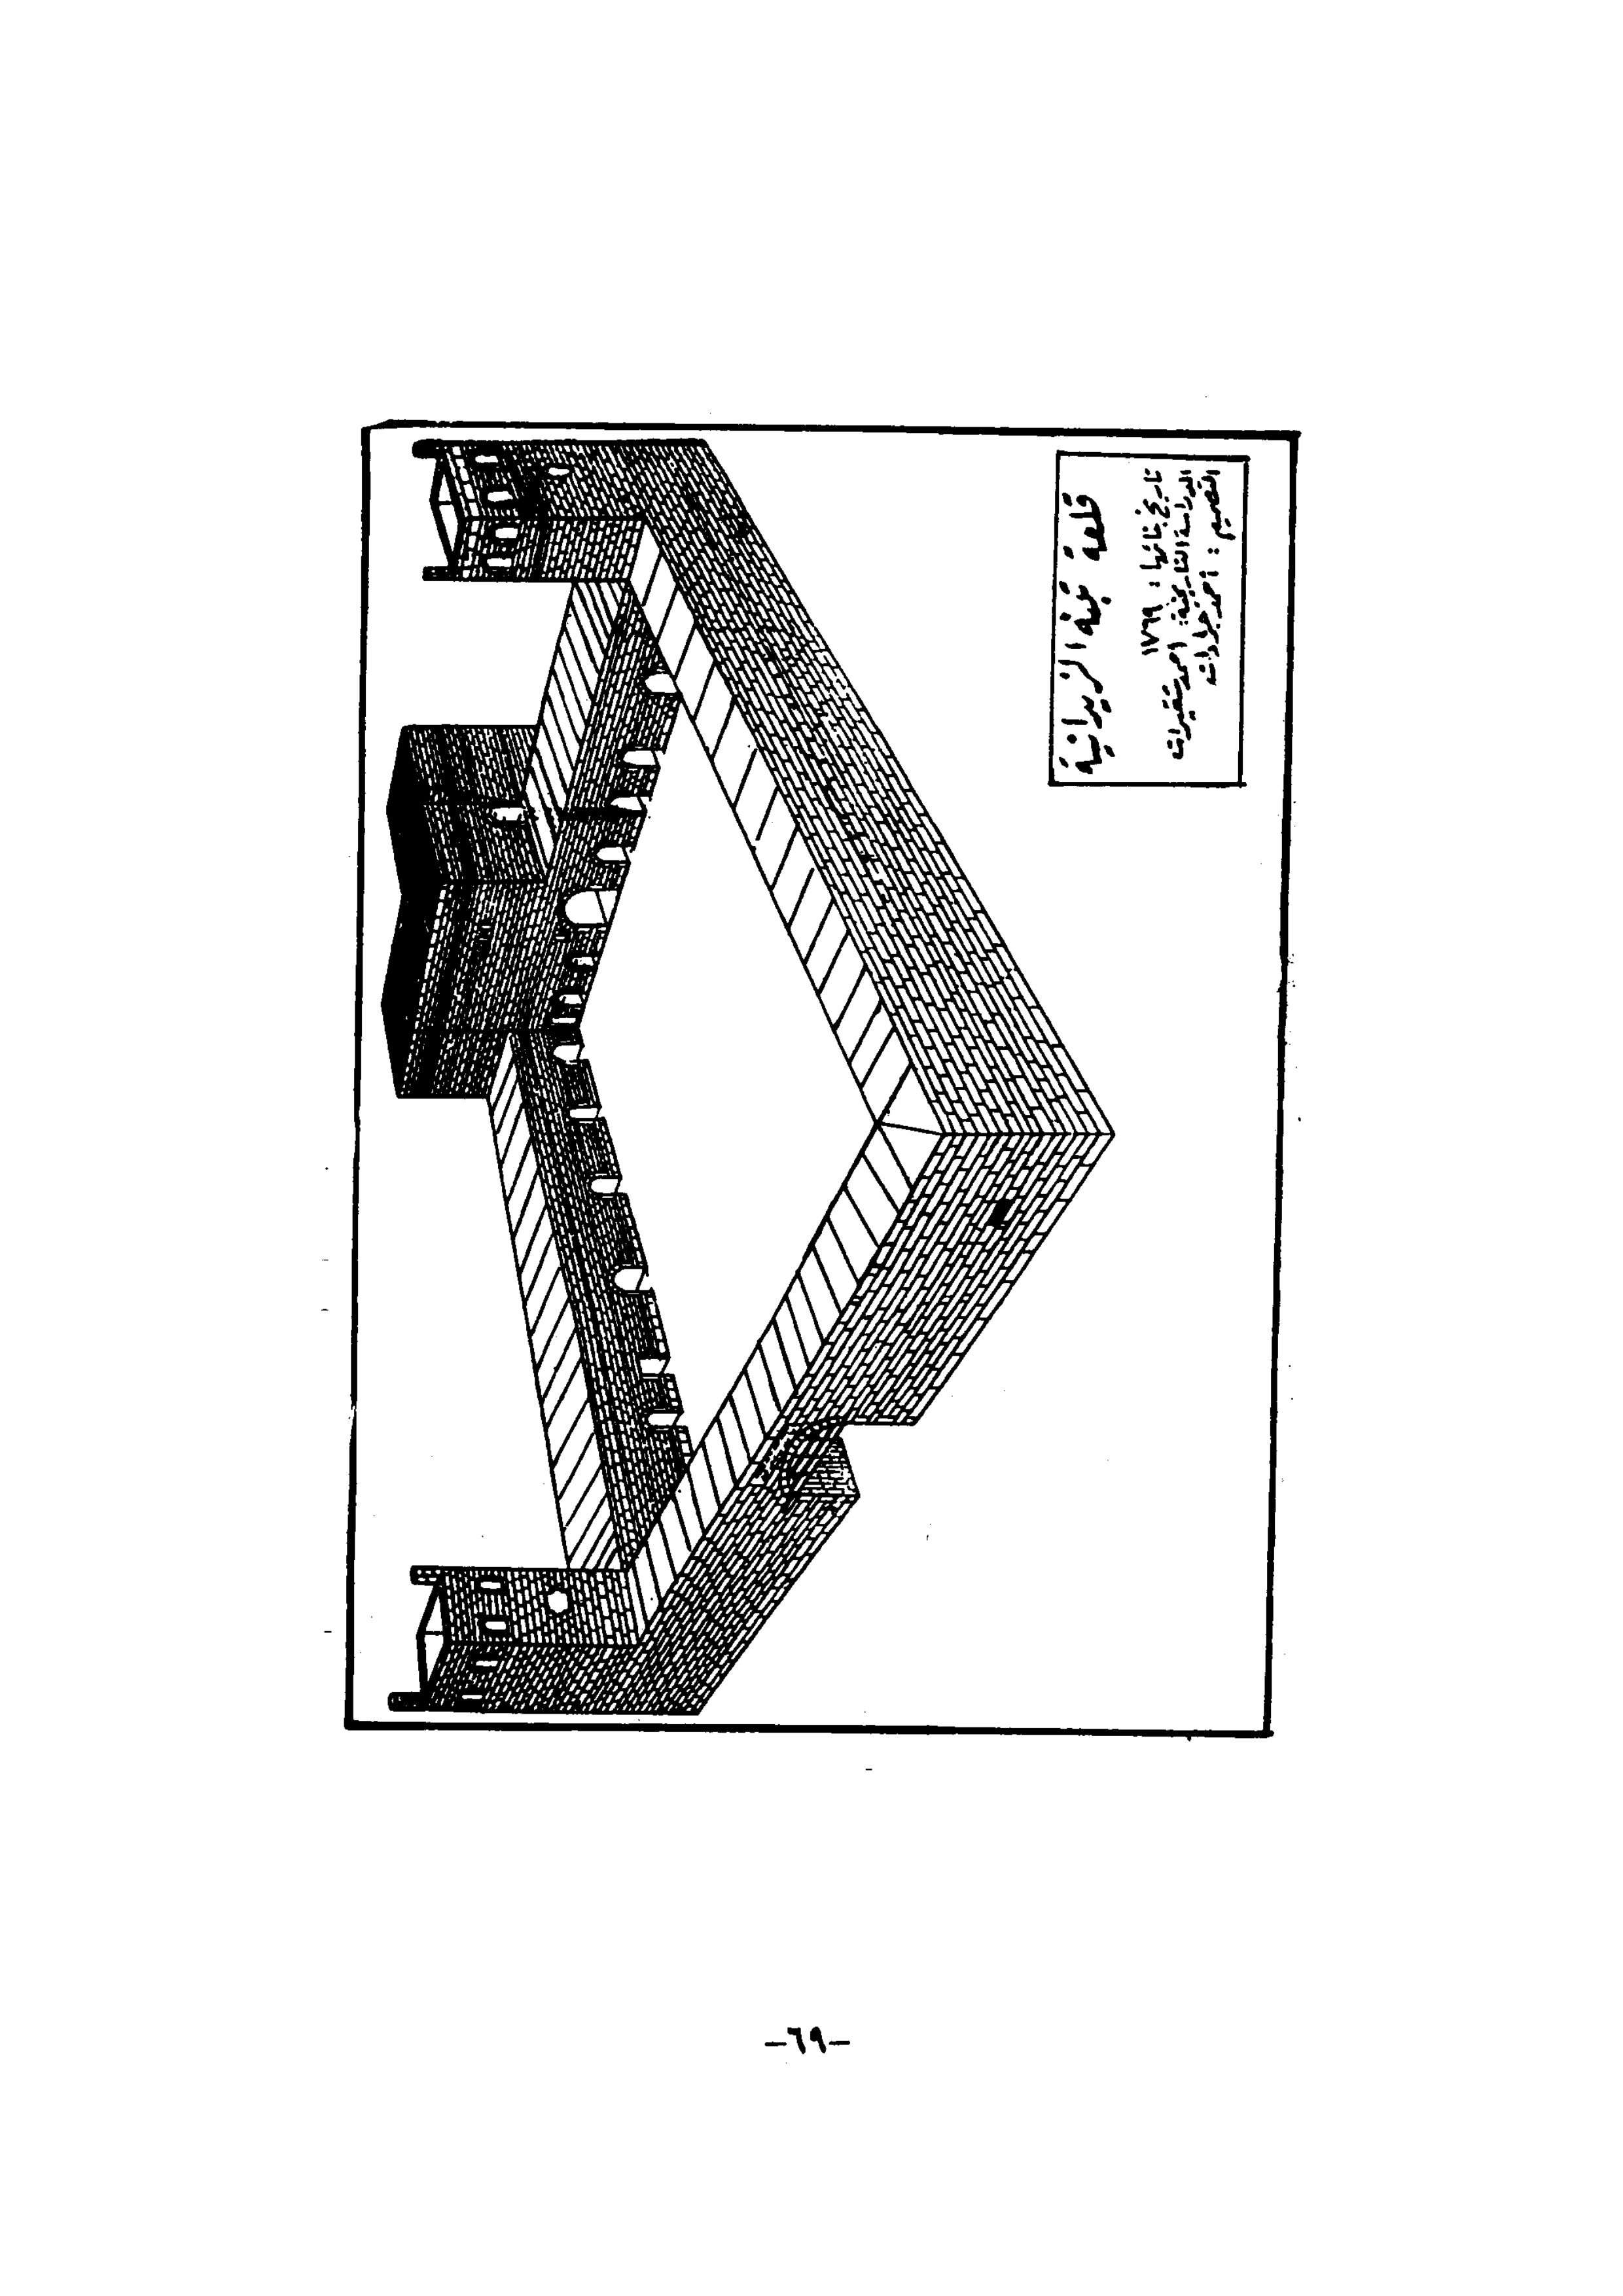 قلعة تبنة الزيدانية
تاريخ بنائها : ١٧٦٩
الدراسة التاريخية : احمد شقيرات
التصميم : احمد جرادات
-٦٩-